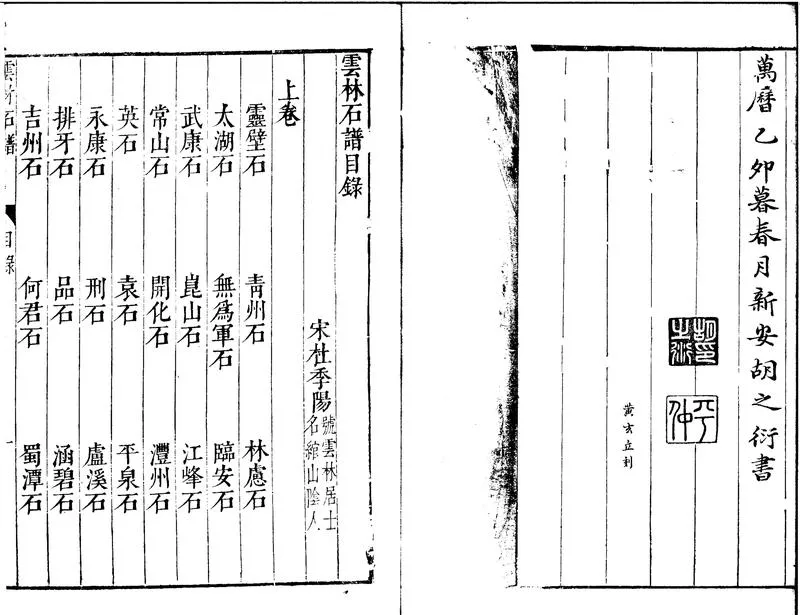 萬曆乙卯暮春月新安胡之衍書
胡之衍印
平仲
黃玄立刻
雲林石譜目錄
宋杜季陽號雲林居士名綰山陰人
上卷
靈壁石 青州石 林慮石
太湖石 無爲軍石 臨安石
武康石 崑山石 江峰石
常山石 開化石 灃州石
英石 袁石 平泉石
永康石 刑石 盧溪石
排牙石 品石 涵碧石
吉州石 何君石 蜀潭石
目錄
一